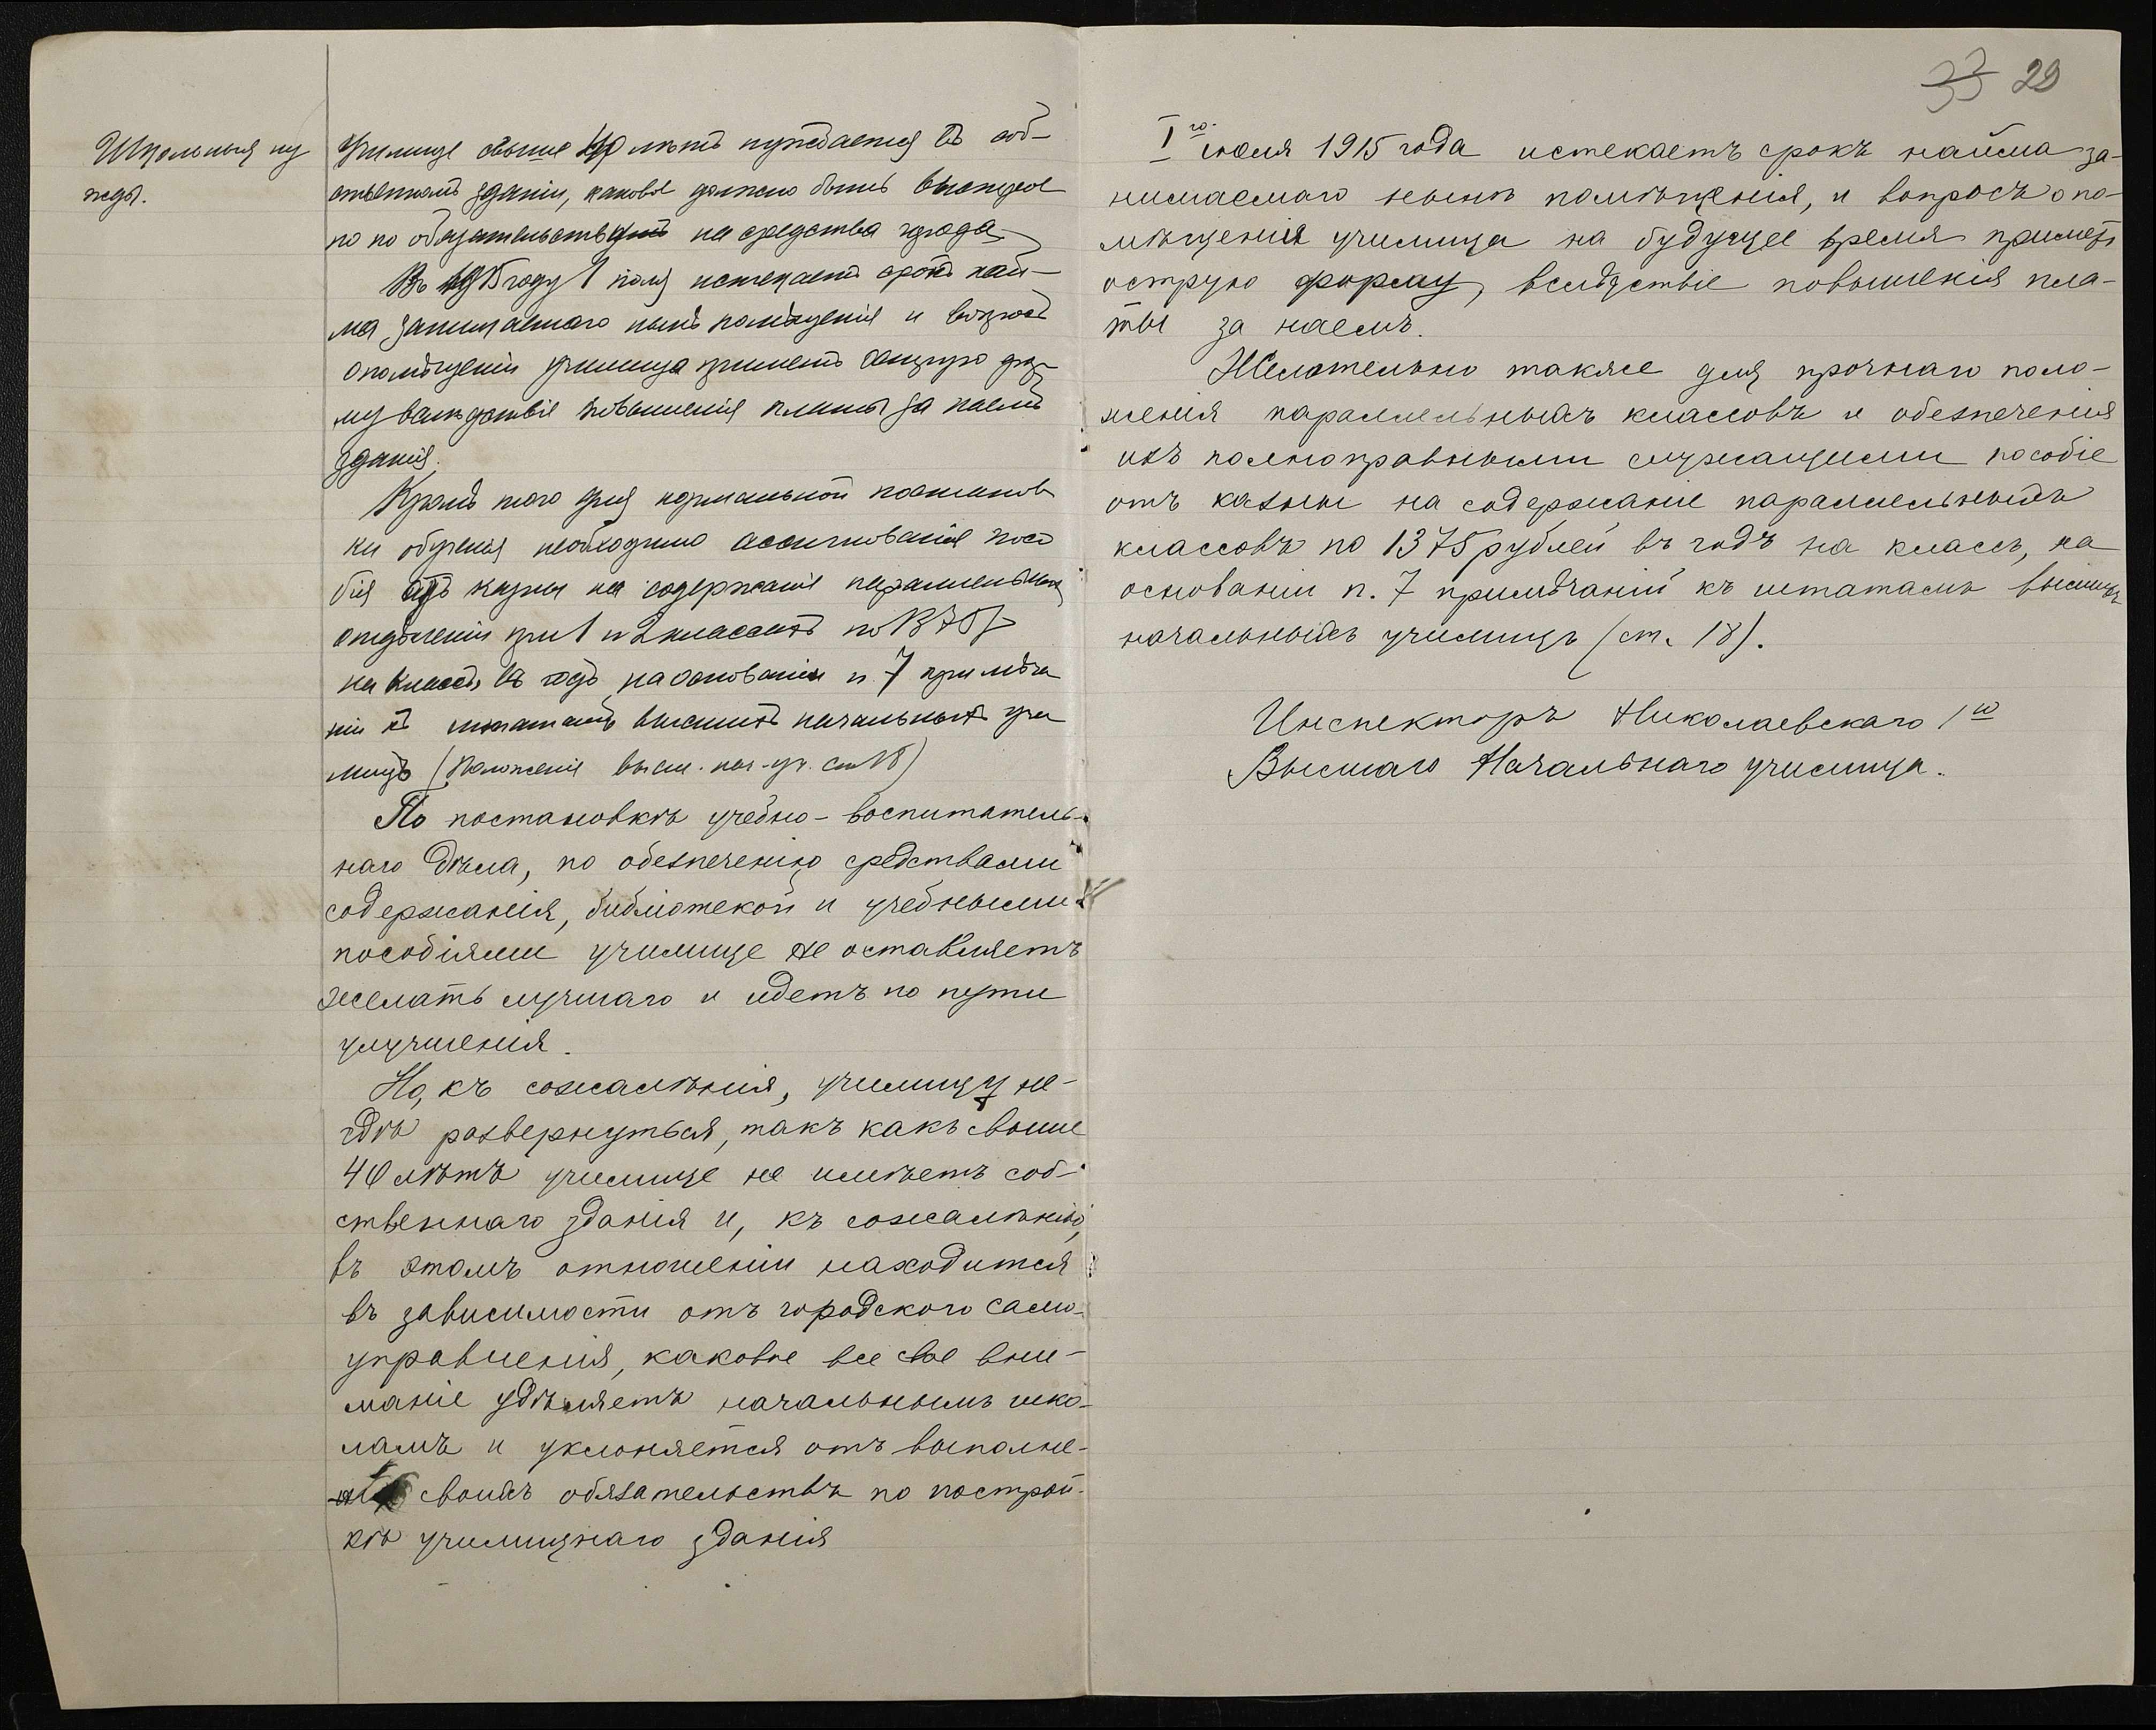 Школьныя ну
жды.
Училище свыше 40 лѣтъ нуждается въ соб-
ственномъ зданіи, каковое должно быть выстрое
но по обязательству на средства города.
Въ 1915 году 1 іюля истекаетъ срокъ най-
ма занимаемаго нынѣ помѣщенія и вопросъ
о помѣщеніи училища приметъ острую фор-
му вслѣдствіе повышенія платы за наемъ
зданія.
Кромѣ того для нормальной постанов
ки обученія необходимо ассигнованіе посо
бія отъ казны на содержаніе параллельныхъ
отдѣленій при 1 и 2 классахъ по 1375 р
на классъ въ годъ на основаніи п. 7 примѣча
ній къ штатамъ высшихъ начальныхъ учи
лищъ (Положенія высш. нач. уч. ст. 18)
По постановкѣ учебно-воспитатель-
наго дѣла, по обезпеченію средствами
содержанія, библіотекой и учебными
пособіями училище не оставляетъ
желать лучшаго и идетъ по пути
улучшенія.
Но, къ сожалѣнія, училищу не-
гдѣ развернуться, такъ какъ свыше
40 лѣтъ училище не имѣетъ соб-
ственнаго зданія и, къ сожалѣнію,
въ этомъ отношеніи находится
въ зависимости отъ городского само-
управленія, каковое все свое вни-
маніе удѣляетъ начальнымъ шко-
ламъ и уклоняется отъ выполне-
своихъ обязательствъ по построй-
кѣ училищнаго зданія
33 29
I го іюля 1915 года истекаетъ срокъ найма за-
нимаемаго нынѣ помѣщенія, и вопросъ о по-
мѣщеніи училища на будущее время приметъ
острую форму, вслѣдствіе повышенія пла-
ты за наемъ.
Желательно также для прочнаго поло-
женія параллельныхъ классовъ и обезпеченія
ихъ полноправными служащими пособіе
отъ казны на содержаніе параллельныхъ
классовъ по 1375 рублей въ годъ на классъ, на
основаніи п. 7 примѣчаній къ штатамъ высшихъ
начальныхъ училищъ (ст. 18).
Инспекторъ Николаевскаго 1го
Высшаго Начальнаго училища.